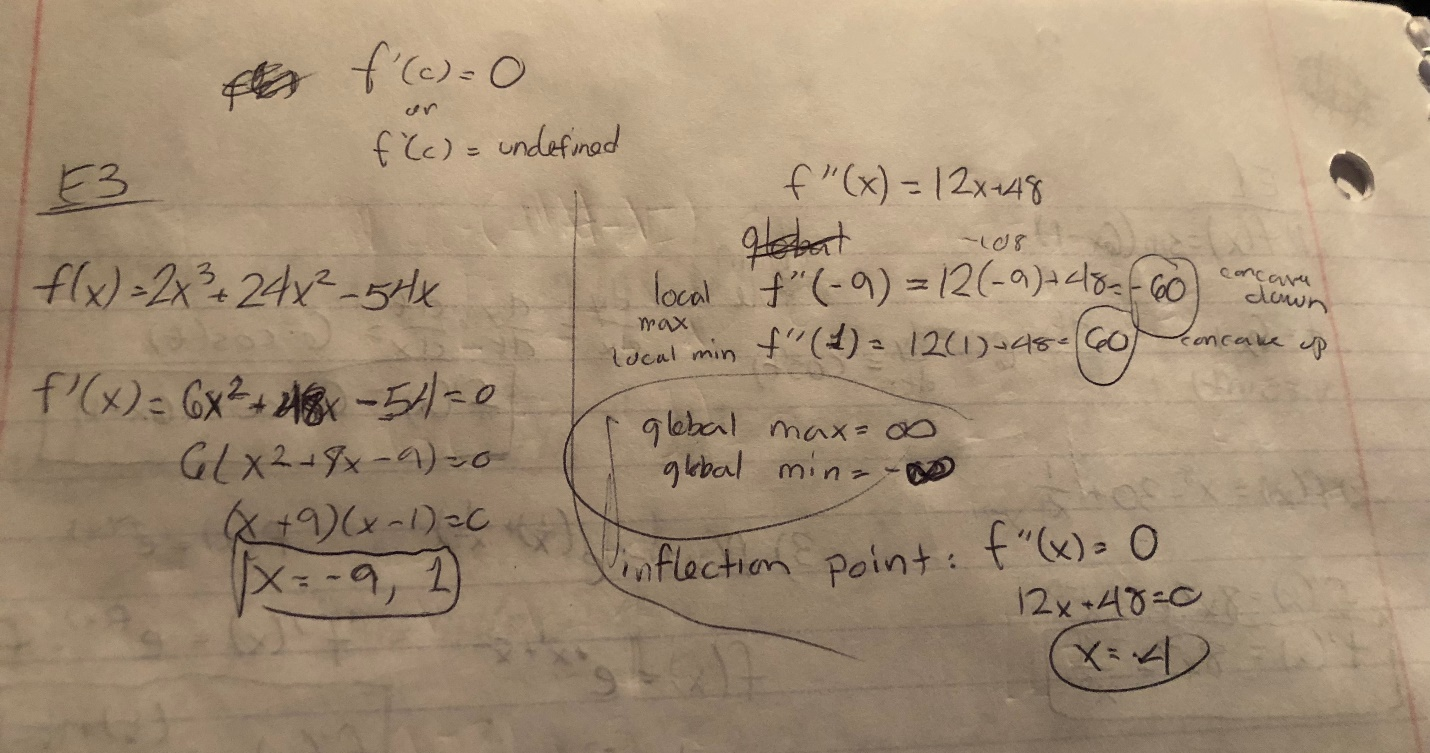 f'(c) = 0
or
f'(c) = undefined
E3
f(x) = 2x³ + 24x² - 54x
f'(x) = 6x² + 48x - 54 = 0
6(x² + 8x - 9) = 0
(x + 9)(x - 1) = 0
x = -9, 1
f''(x) = 12x + 48
global
-108
local max f''(-9) = 12(-9) + 48 = -60 concave down
local min f''(1) = 12(1) + 48 = 60 concave up
global max = ∞
global min = -∞
inflection point: f''(x) = 0
12x + 48 = 0
x = -4